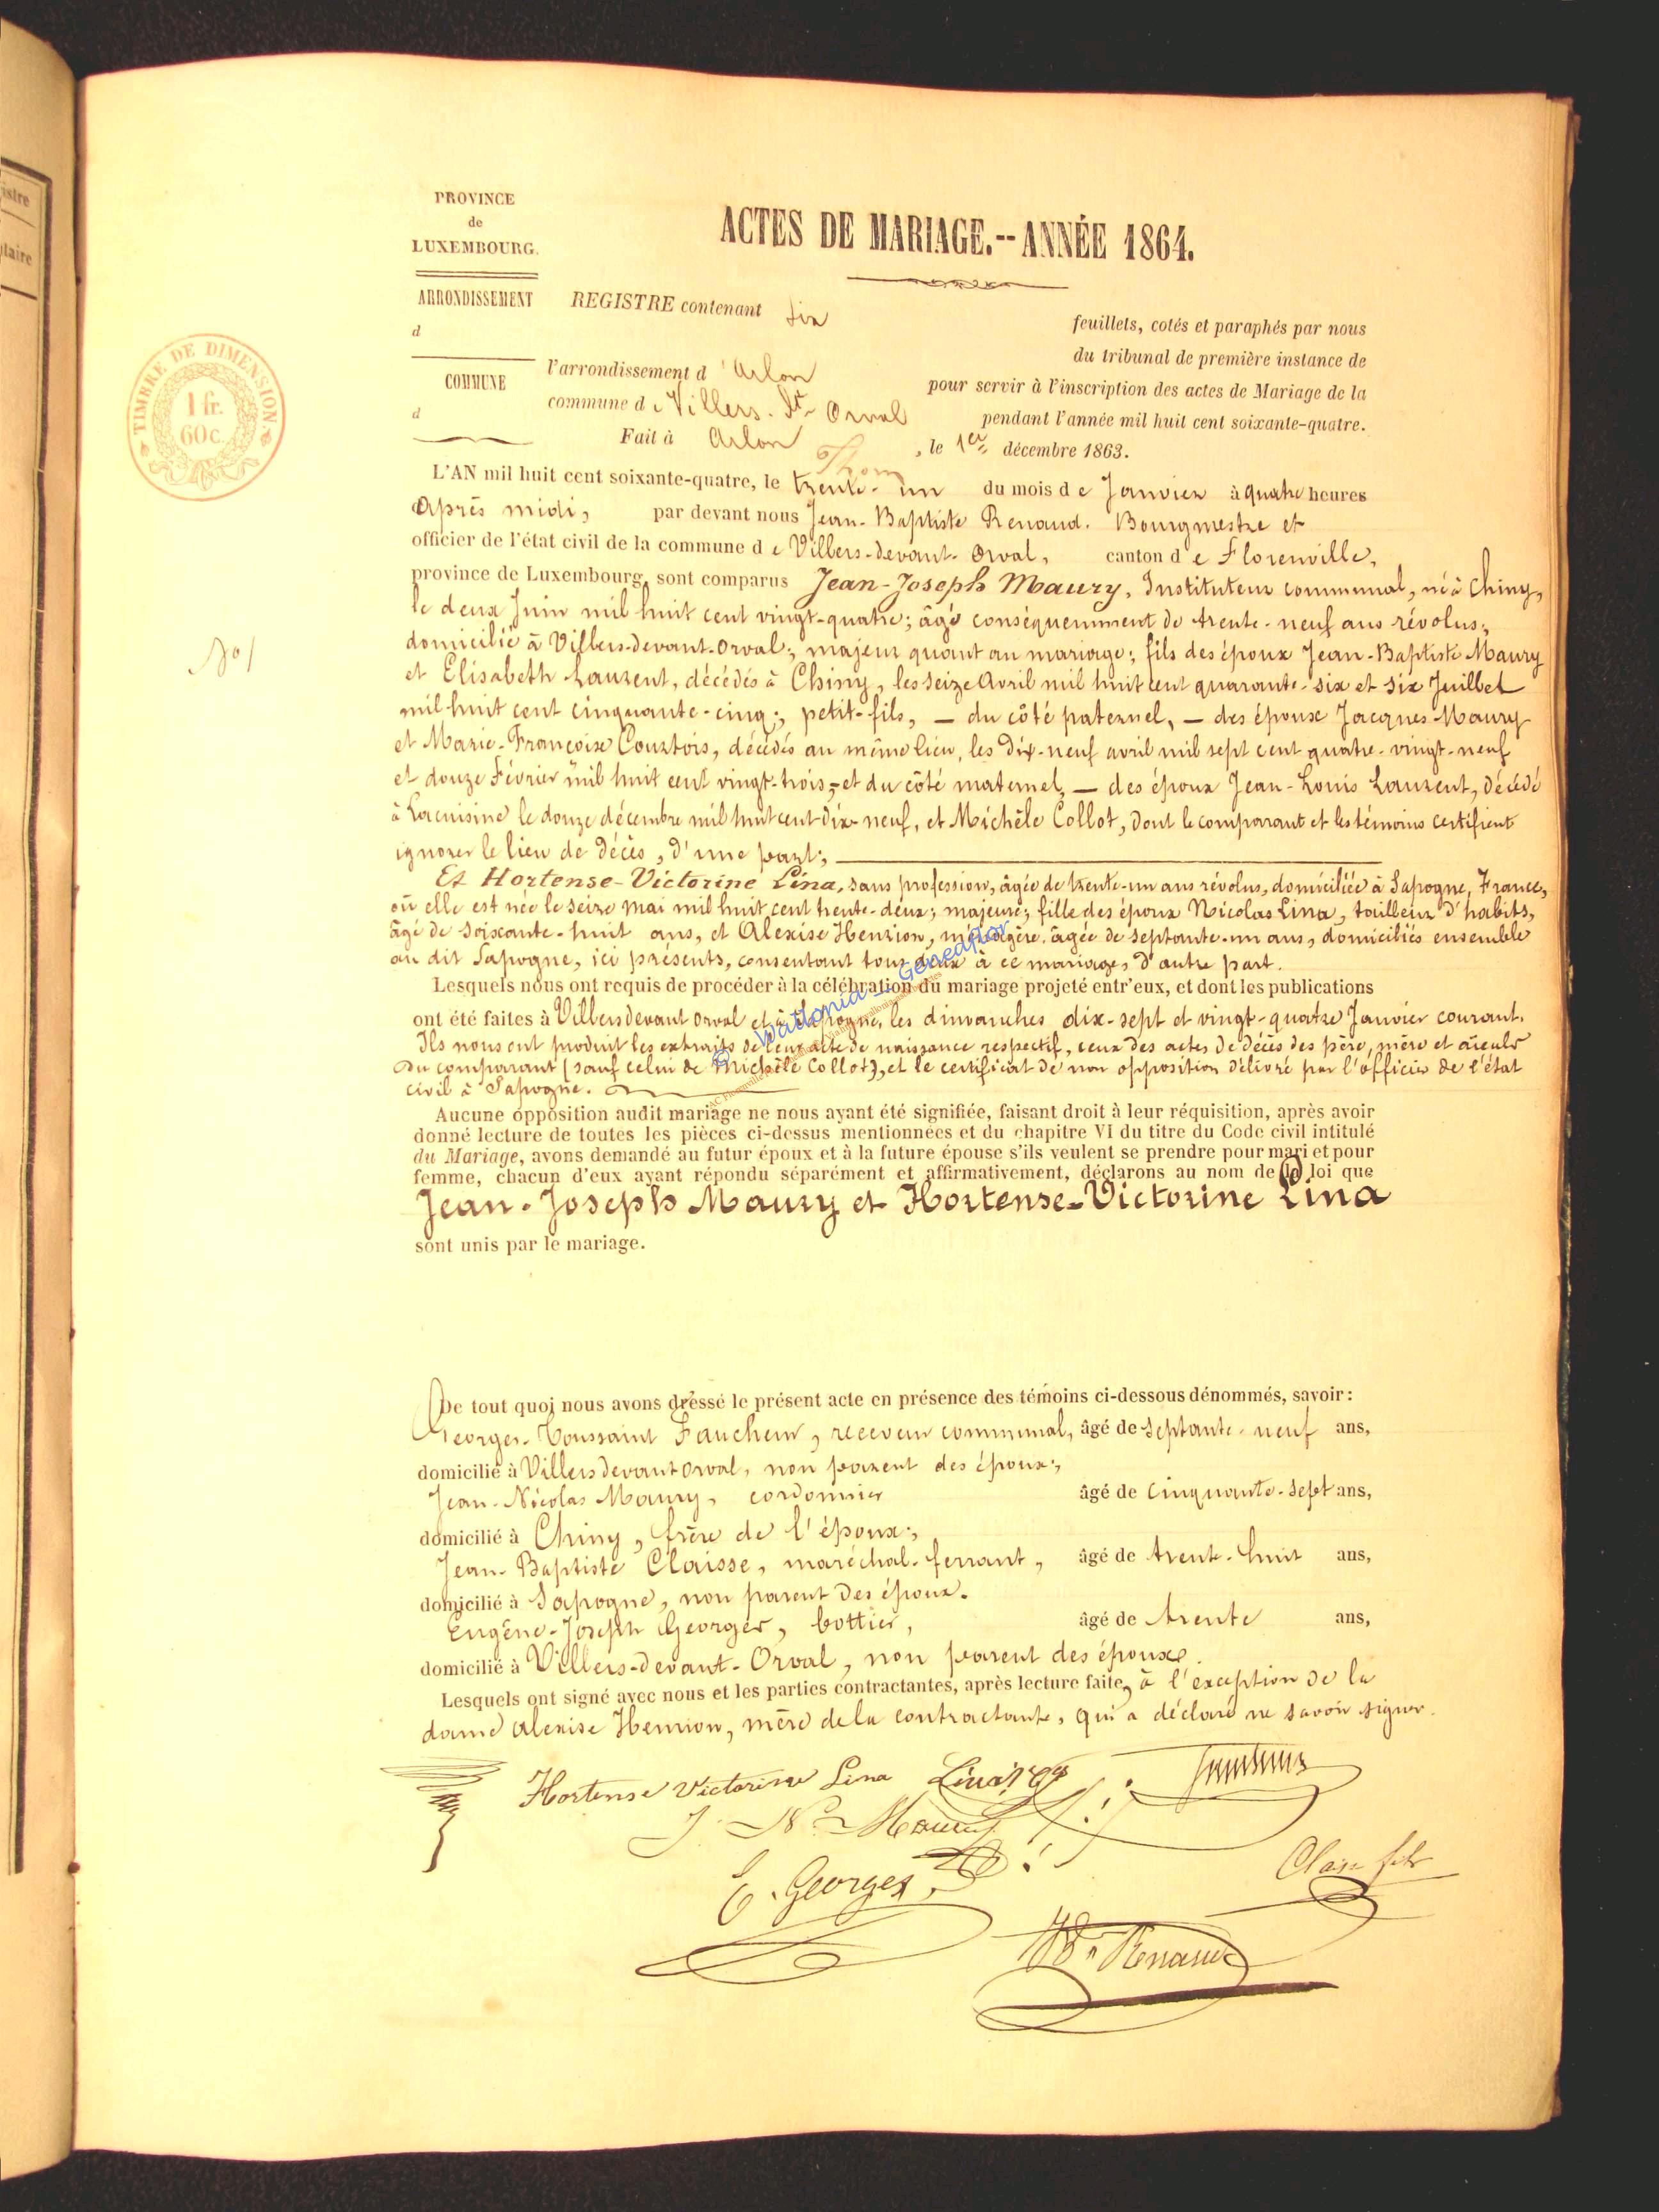 PROVINCE
de
LUXEMBOURG.
ACTES DE MARIAGE.--ANNÉE 1864.
ARRONDISSEMENT
d
COMMUNE
d
REGISTRE contenant six feuillets, cotés et paraphés par nous
du tribunal de première instance de
l'arrondissement d'Arlon pour servir à l'inscription des actes de Mariage de la
commune de Villers-dt-Orval pendant l'année mil huit cent soixante-quatre.
Fait à Arlon, le 1er décembre 1863.
TIMBRE DE DIMENSION.
1 fr.
60 c.
istre
taire
No 1
L'AN mil huit cent soixante-quatre, le trente-un du mois de Janvier à quatre heures
après midi, par devant nous Jean-Baptiste Renaud. Bourgmestre et
officier de l'état civil de la commune de Villers-devant-Orval, canton de Florenville,
province de Luxembourg, sont comparus Jean-Joseph Maury, Instituteur communal, né à Chiny,
le deux Juin mil huit cent vingt-quatre; âgé conséquemment de trente-neuf ans révolus;
domicilié à Villers-devant-Orval; majeur quant au mariage; fils des époux Jean-Baptiste Maury
et Elisabeth Laurent, décédés à Chiny, les seize Avril mil huit cent quarante-six et six Juillet
mil huit cent cinquante-cinq; petit-fils, — du côté paternel, — des époux Jacques Maury
et Marie-Françoise Courtois, décédés au même lieu, les dix-neuf avril mil sept cent quatre-vingt-neuf
et douze Février mil huit cent vingt-trois, et du côté maternel, — des époux Jean-Louis Laurent, décédé
à Lacuisine le douze décembre mil huit cent dix-neuf, et Michèle Collot, dont le comparant et les témoins certifient
ignorer le lieu de décès, d'une part;
Et Hortense-Victorine Lina, sans profession, âgée de trente-un ans révolus, domiciliée à Sapogne, France,
où elle est née le seize mai mil huit cent trente-deux; majeure; fille des époux Nicolas Lina, tailleur d'habits,
âgé de soixante-huit ans, et Alexise Henrion, ménagère, âgée de septante-un ans, domiciliés ensemble
au dit Sapogne, ici présents, consentant tous deux à ce mariage, d'autre part.
Lesquels nous ont requis de procéder à la célébration du mariage projeté entr'eux, et dont les publications
ont été faites à Villers devant Orval et à Sapogne, les dimanches dix-sept et vingt-quatre Janvier courant.
Ils nous ont produit les extraits de leur acte de naissance respectif, ceux des actes de décès des père, mère et aïeuls
du comparant (sauf celui de Michèle Collot), et le certificat de non opposition délivré par l'officier de l'état
civil à Sapogne.
© Wallonia - Geneaflor
Aucune opposition audit mariage ne nous ayant été signifiée, faisant droit à leur réquisition, après avoir
donné lecture de toutes les pièces ci-dessus mentionnées et du chapitre VI du titre du Code civil intitulé
du Mariage, avons demandé au futur époux et à la future épouse s'ils veulent se prendre pour mari et pour
femme, chacun d'eux ayant répondu séparément et affirmativement, déclarons au nom de la loi que
Jean-Joseph Maury et Hortense-Victorine Lina
sont unis par le mariage.
De tout quoi nous avons dressé le présent acte en présence des témoins ci-dessous dénommés, savoir:
Georges-Toussaint Faucheur, receveur communal, âgé de septante-neuf ans,
domicilié à Villers devant Orval, non parent des époux;
Jean-Nicolas Maury, cordonnier âgé de cinquante-sept ans,
domicilié à Chiny, frère de l'époux;
Jean-Baptiste Claisse, maréchal-ferrant, âgé de trente-huit ans,
domicilié à Sapogne, non parent des époux.
Eugène-Joseph Georges, bottier, âgé de trente ans,
domicilié à Villers-devant-Orval, non parent des époux.
Lesquels ont signé avec nous et les parties contractantes, après lecture faite, à l'exception de la
dame Alexise Henrion, mère de la contractante, qui a déclaré ne savoir signer.
Hortense Victorine Lina
J. N. Maury
E. Georges
Renaud